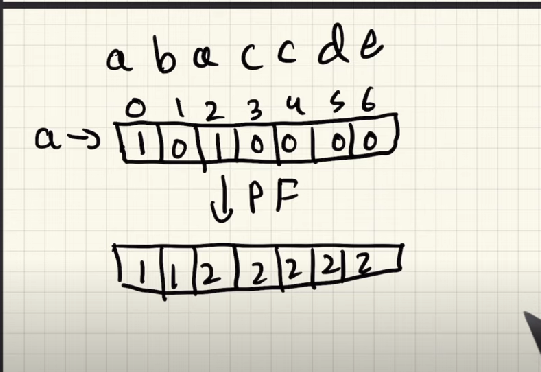 a b a c c d e
0 1 2 3 4 5 6
a → 1 0 1 0 0 0 0
↓ PF
1 1 2 2 2 2 2